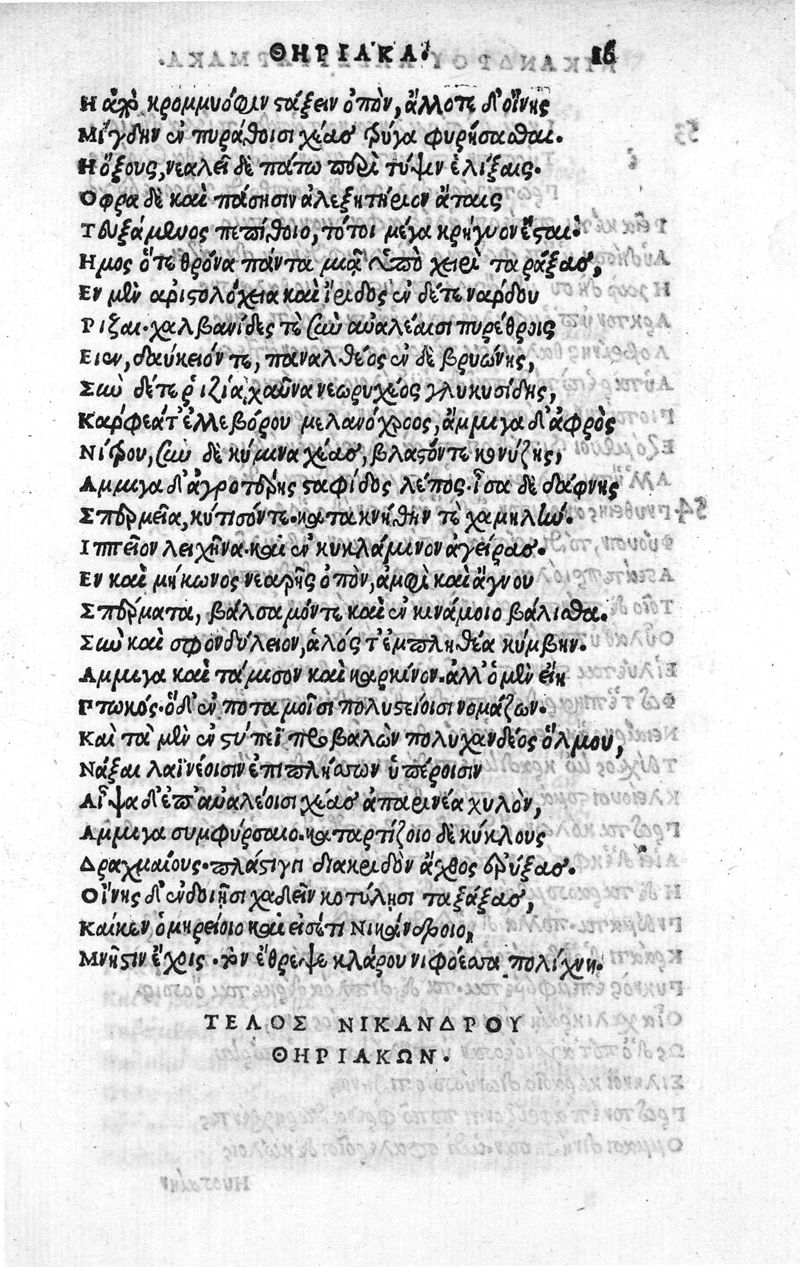 ΘΗΡΙΑΚΑ. 16
Η ἀπὸ κρομμυόφιν στάξειν ὀπὸν, ἄλλοτε δ' οἴνης
Μίγδην ἐν πυράθοισι χέας φύρήσασθαι.
Η ὄξους, νεαλεῖ δὲ πάτῳ περὶ τύψιν ἑλίξαις.
Οφρα δὲ καὶ πάσῃσιν ἀλεξητήριον ἄταις
Τευξάμενος πεπίθοιο, τό τοι μέγα κρήγυον ἔσται.
Ημος ὅτε θρόνα πάντα μιᾷ ὑπὸ χειρὶ ταράξας,
Εν μὲν ἀριστολόχεια καὶ ἴριδος ἐν δέ τε νάρδου
Ριζαι. χαλβανίδες τε σὺν αὐαλέαισι πυρέθροις
Ειεν, δαύκειόν τε, παναλθέος ἐν δὲ βρυώνης,
Σὺν δέ τε ῥιζία χαῦνα νεωρυχέος γλυκυσίδης,
Καρφεά τ' ἐλλεβόρου μελανόχροος, ἄμμιγα δ' ἀφρὸς
Νίτρου, σὺν δὲ κύμινα χέας, βλαστόν τε κονύζης,
Αμμιγα δ' ἀγροτέρης σταφίδος λέπος. ἶσα δὲ δάφνης
Σπερμεῖα, κύτισόν τε. κατακνήθην τε χαμηλήν.
Ιππεῖον λειχῆνα. καὶ ἐν κυκλάμινον ἀγείρας.
Εν καὶ μήκωνος νεαρῆς ὀπὸν, ἀμφὶ καὶ ἄγνου
Σπέρματα, βάλσαμόν τε καὶ ἐν κινάμοιο βάλεσθαι.
Σὺν καὶ σφονδύλειον, ἁλός τ' ἐμπληθέα κύμβην.
Αμμιγα καὶ τάμισον καὶ καρκίνον. ἀλλ' ὁ μὲν εἴη
Πτωκός. ὁ δ' ἐν ποταμοῖσι πολυστείοισι νομάζων.
Καὶ τὰ μὲν ἐν στύπεϊ προβαλὼν πολυχανδέος ὅλμου,
Νάξαι λαϊνέοισιν ἐπιπλήσσων ὑπέροισιν
Αἶψα δ' ἐπ' αὐαλέοισι χέας ἀπαρινέα χυλὸν,
Αμμιγα συμφύρσαιο. καταρτίζοιο δὲ κύκλους
Δραχμαίους. πλάστιγγι διακριδὸν ἄχθος ἐρύξας.
Οἴνης δ' ἐν δοιῇσι χαδεῖν κοτύλῃσι ταράξας,
Καί κεν ὁμηρείοιο καὶ εἰσέτι Νικάνδροιο,
Μνῆστιν ἔχοις. τὸν ἔθρεψε κλάρου νιφόεσσα πολίχνη.
ΤΕΛΟΣ ΝΙΚΑΝΔΡΟΥ
ΘΗΡΙΑΚΩΝ.